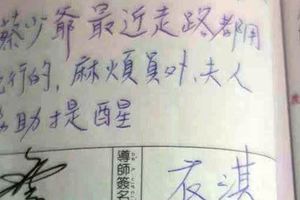 蔡少爺最近走路都用
行的，麻煩員外、夫人
助提醒
導師簽名